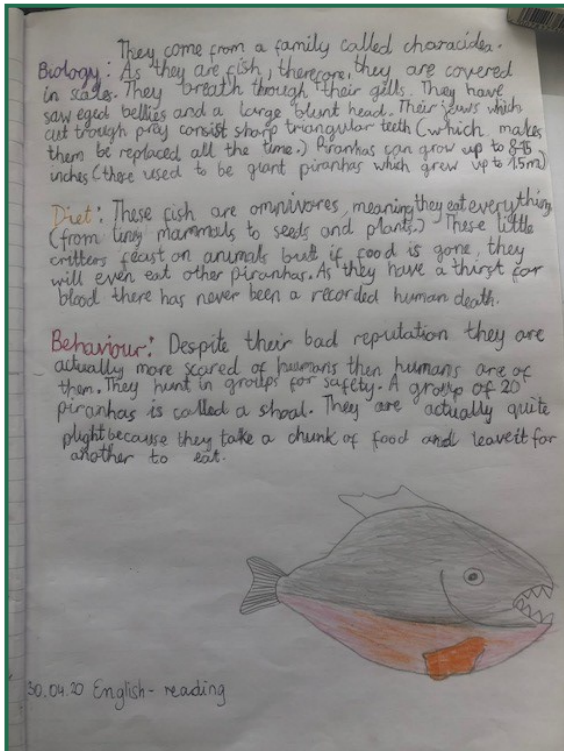 They come from a family called characidea.
Biology: As they are fish, therefore, they are covered
in scales. They breath through their gills. They have
saw eged bellies and a large blunt head. Their jaws which
cut trough pray consist sharp triangular teeth (which makes
them be replaced all the time.) Piranhas can grow up to 8-15
inches (there used to be giant piranhas which grew up to 1.5m)
Diet: These fish are omnivores, meaning they eat everything
(from tiny mammals to seeds and plants.) These little
critters feast on animals but if food is gone, they
will even eat other piranhas. As they have a thirst for
blood there has never been a recorded human death.
Behaviour: Despite their bad reputation they are
actually more scared of humans then humans are of
them. They hunt in groups for safety. A group of 20
piranhas is called a shoal. They are actually quite
plight because they take a chunk of food and leave it for
another to eat.
30.04.20 English - reading